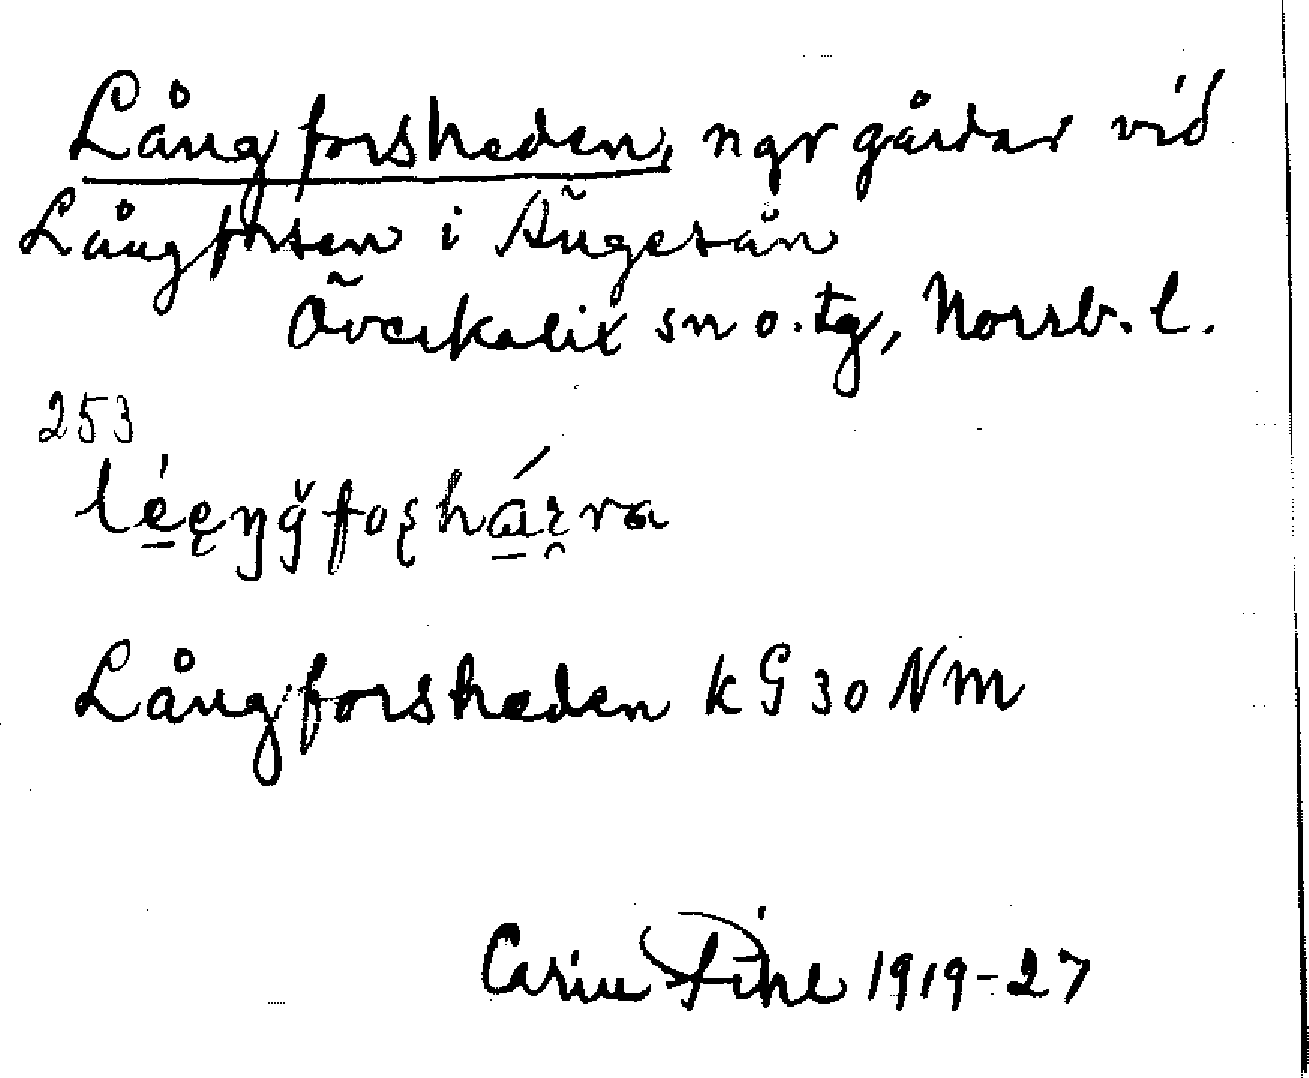 Långforsheden, ngr gårdar vid
Långforsen i Ängesån
Överkalix sn o. tg, Norrb. l.
253
Långforsheden kG 30 NM
Carin Pihl 1919-27